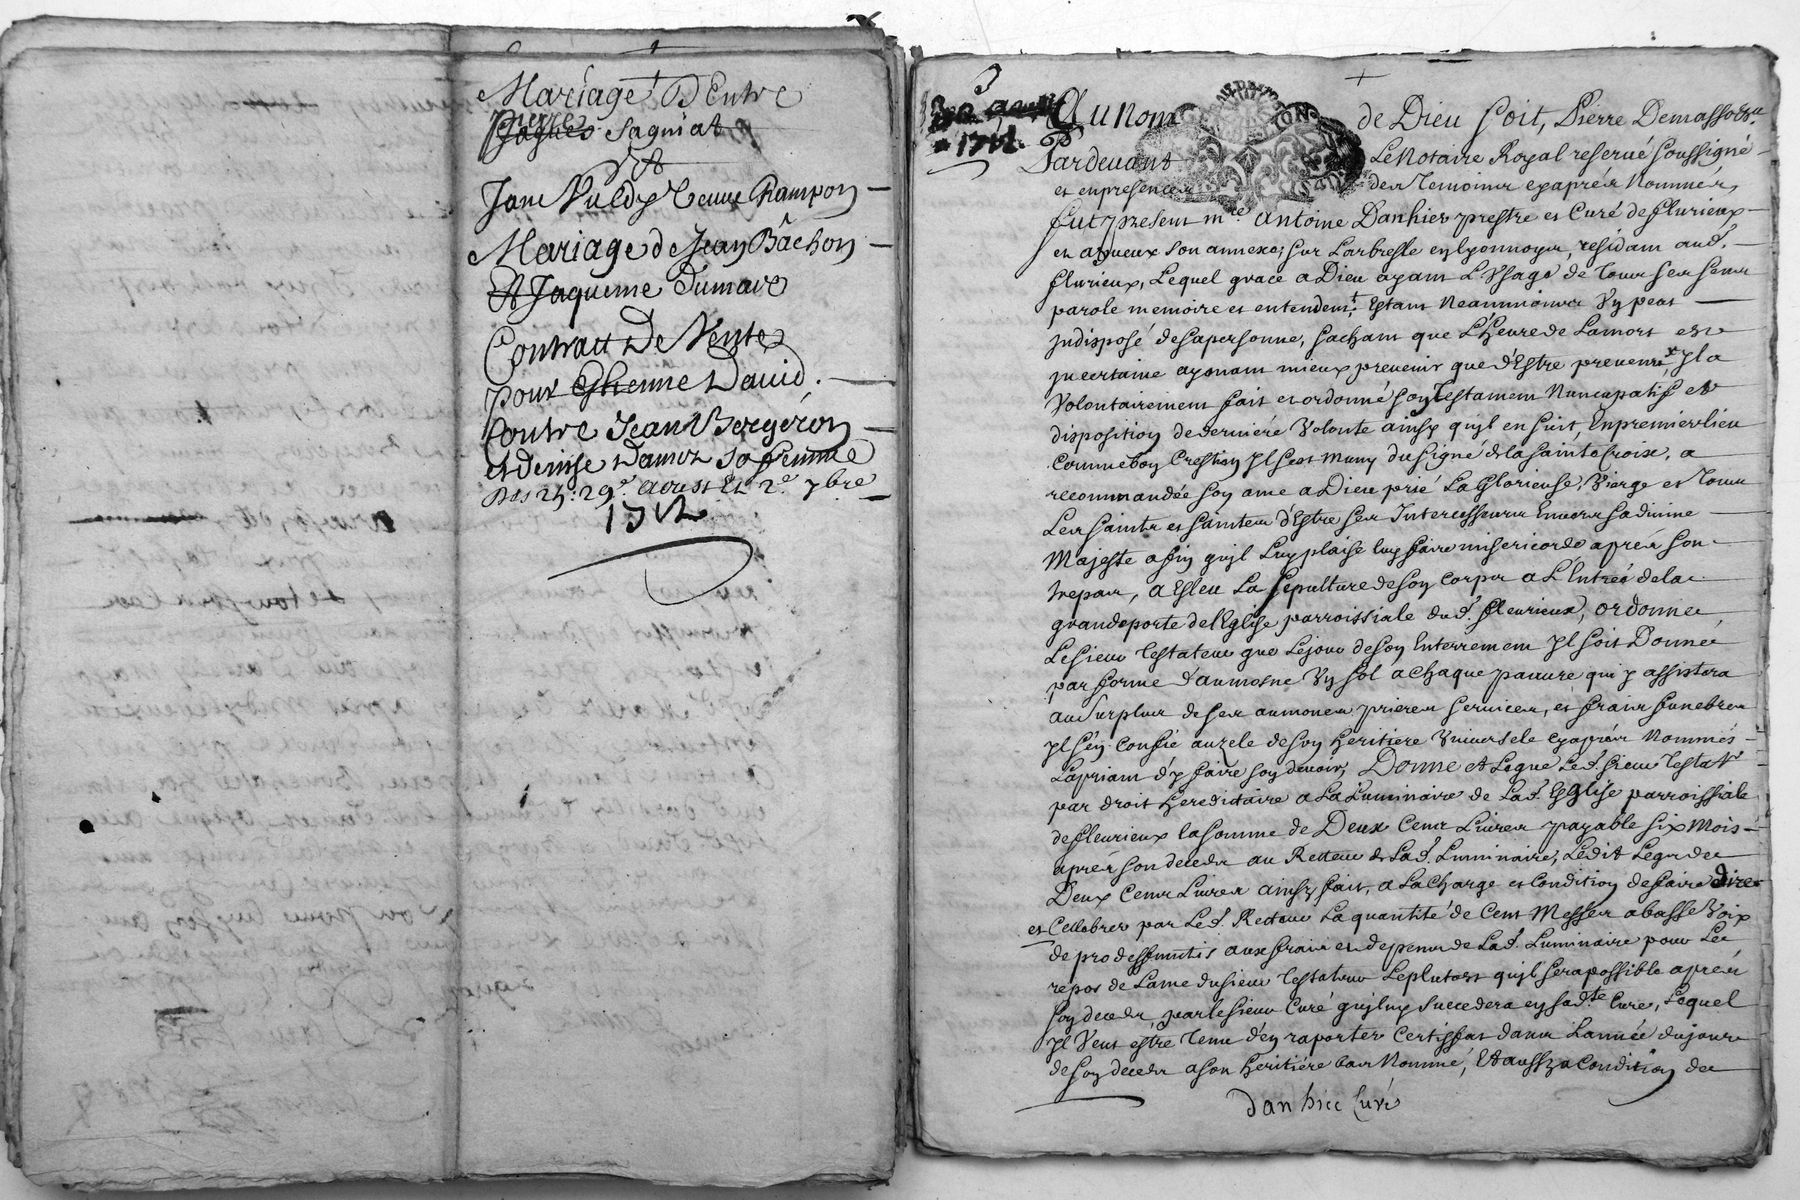 Mariage D'Entre
Pierre
Jaques Sagniat
Et
Jane Vuldy veuve Chambon
Mariage de Jean Bâchon
Et Jaqueme Dumaix
Contract De Vente
pour Estienne David.
Contre Jean Bergeron
et denise Damon Sa femme
Des 25: 29e. Aoust Et 2e. 7bre
1712
30e. aoust
1712
Au Nom de Dieu Soit, Pierre
Pardevant Le Notaire Royal reservé soussigné
et en presence des Temoins cyaprés Nommés,
fut present mre. Antoine Danhier prestre et Curé de flurieux
et son annexe, sur Larbresle en lyonnois, residant aud.
flurieux, Lequel grace a Dieu ayant L'Usage de tous ses sens
parole memoire et entendemt. Estant Neanmoins Un peu
indisposé de sa personne, sachant que L'heure de La mort est
incertaine aymant mieux prevenir que d'Estre prevenu Il a
Volontairement fait et ordonné son Testament Nuncupatif et
disposition de derniere Volonté ainsy qu'il en suit, En premier lieu
Comme bon Crestien Il s'est muny du signe de la sainte Croix, a
recommandée son ame a Dieu prié La Glorieuse Vierge et tous
Les saints et saintes d'Estre ses Intercesseurs Envers sa divine
Majesté afin qu'il Luy plaise luy faire misericorde aprés son
trepas, a Esleu La sepulture de son corps a L'Entrée de la
grande porte de l'Eglise parroissiale dud. fleurieux, ordonne
Le sieur Testateur que Le jour de son Enterrement Il soit Donné
par forme d'aumosne Un sol a Chaque pauvre qui y assistera
au Surplus de ses aumones prieres services, et frais funebres
Il s'en confie au zele de son heritiere Universele cyaprés Nommés
La priant d'y faire son devoir, Donne et Legue Led. sieur Testatr
par droit hereditaire a La Luminaire de Lad. Eglise parroissiale
de fleurieux la somme de Deux Cens Livres payable six Mois
aprés son deceds au Recteur de Lad. Luminaire, Ledit Legs de
Deux Cens Livres ainsy fait, a La Charge et Condition de faire dire
et Cellebrer par Led. Recteur La quantité de Cent Messes a basse Voix
de pro deffunctis aux frais et depens de Lad. Luminaire pour Le
repos de Lame du sieur Testateur Le plutost qu'il sera possible aprés
son deceds par le sieur Curé qui luy succedera en sad.te Cure, Lequel
Il Veut estre tenu d'en raporter Certificat dans Lannée du jour
de son deceds a son heritiere bas Nommé, Et aussy a Condition de
danhier Curé